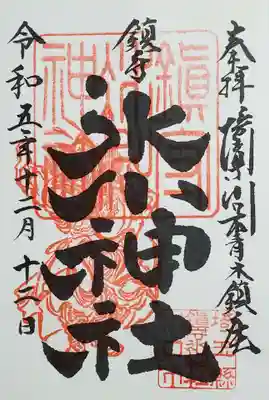 奉拝 埼玉県川口市青木鎮座
鎮守
氷川神社
令和五年十二月十二日